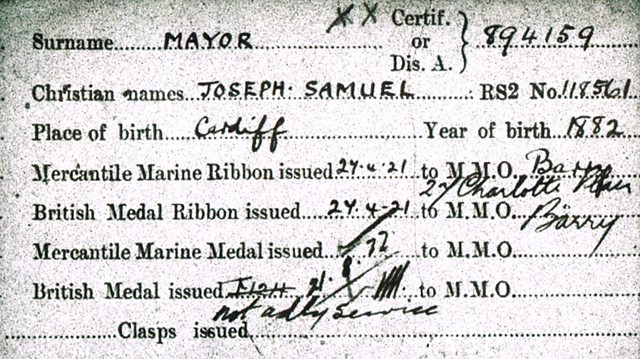 XX Certif.
Surname MAYOR or 894159
Dis. A.
Christian names JOSEPH. SAMUEL RS2 No. 118561
Place of birth Cardiff Year of birth 1882
Mercantile Marine Ribbon issued 27.4.21 to M.M.O. Barry
27 Charlotte
British Medal Ribbon issued 27.4-21 to M.M.O. Barry
Mercantile Marine Medal issued to M.M.O.
British Medal issued 21. to M.M.O.
not adly service
Clasps issued